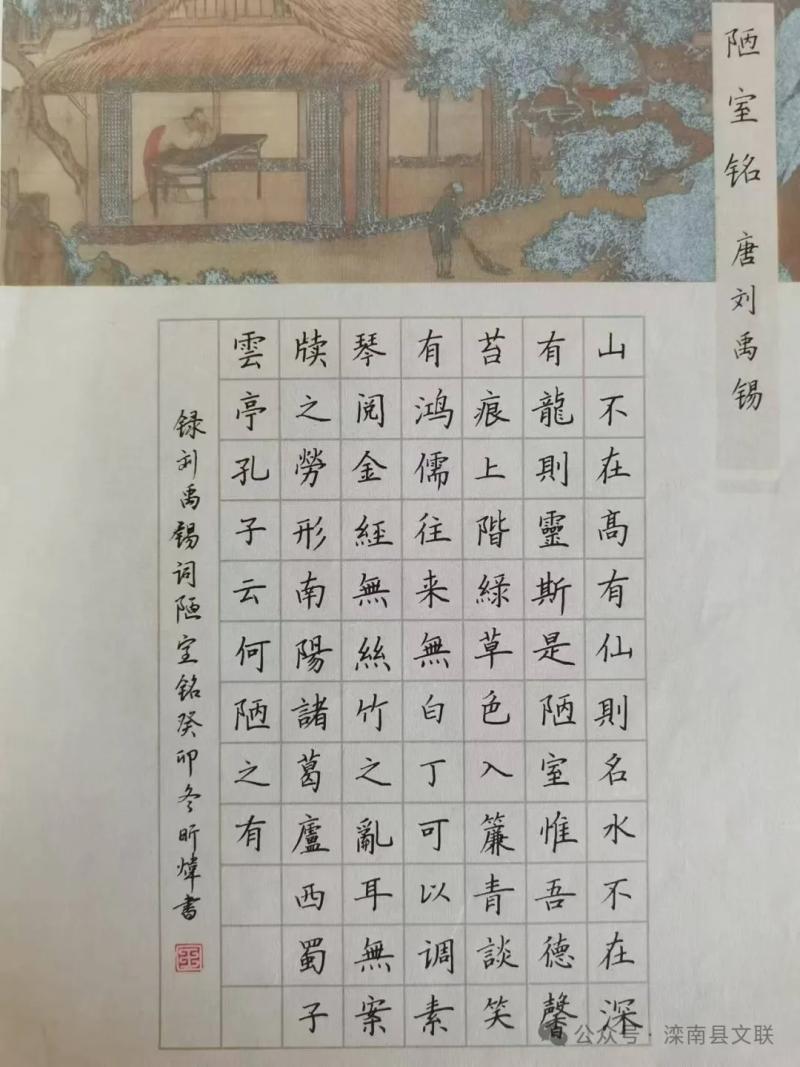 陋室铭 唐刘禹锡
山不在高有仙則名水不在深
有龍則靈斯是陋室惟吾德馨
苔痕上階綠草色入簾青談笑
有鴻儒往来無白丁可以调素
琴阅金經無絲竹之亂耳無案
牍之勞形南陽諸葛廬西蜀子
雲亭孔子云何陋之有
録刘禹锡词陋室铭癸卯冬昕煒書
公众号·滦南县文联